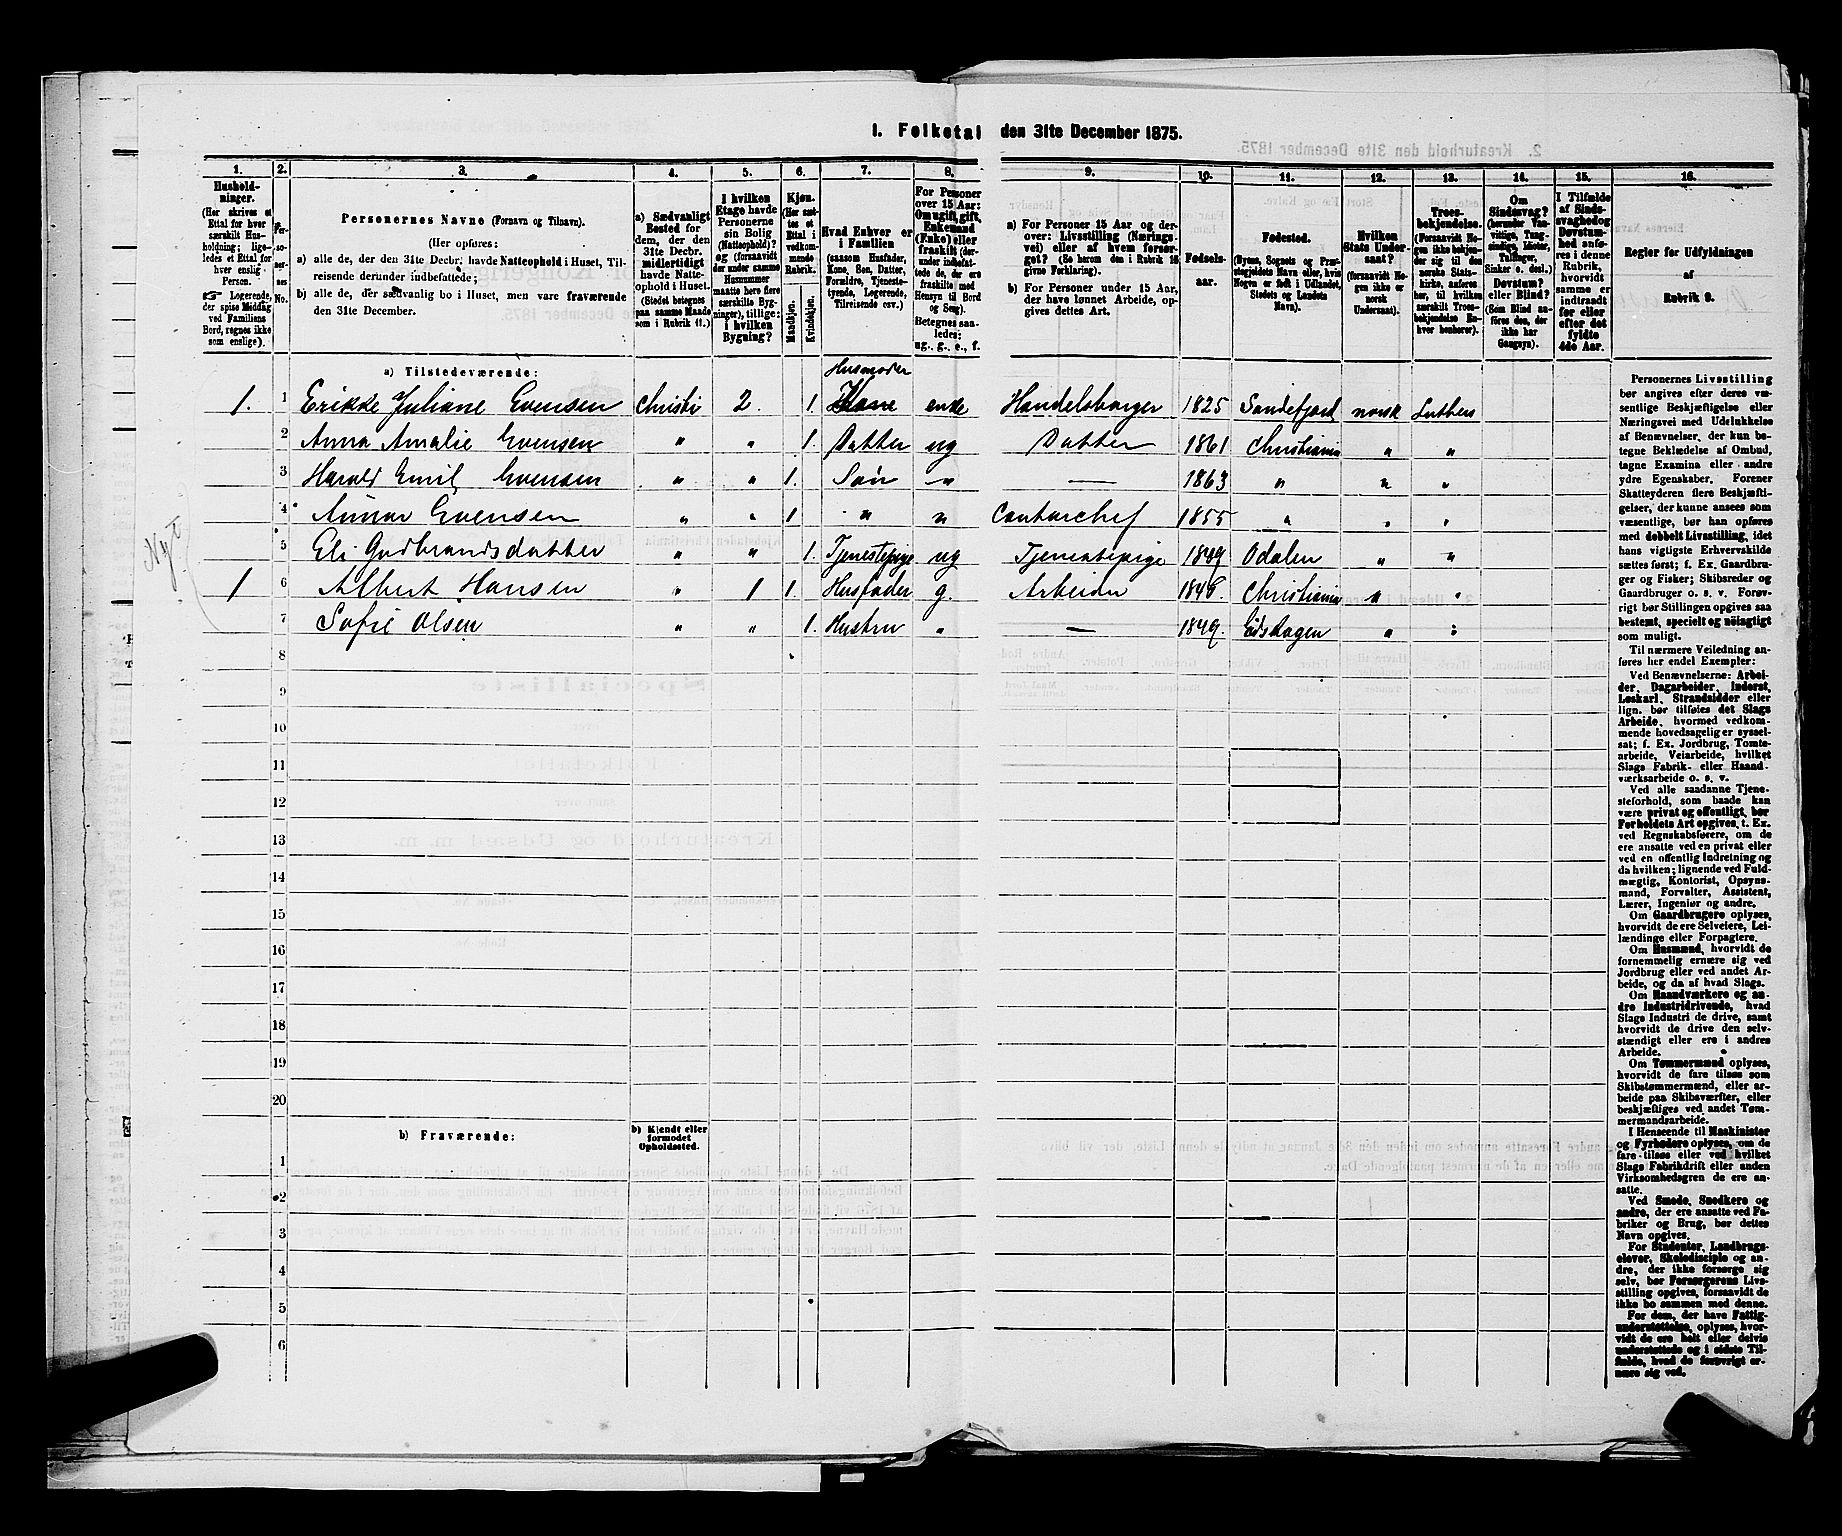 I. Folketal den 31te December 1875.
1. 2. 3. 4. 5. 6. 7. 8. 9. 10. 11. 12. 13. 14. 15. 16.
Husholdninger.
(Her skrives et Ettal for hver særskilt Husholdning; ligeledes et Ettal for hver enslig Person.
☞ Logerende, der spise Middag ved Familiens Bord, regnes ikke som enslige).
Personernes No.
Personernes Navne (Fornavn og Tilnavn).
(Her opføres:
a) alle de, der den 31te Decbr. havde Natteophold i Huset, Tilreisende derunder indbefattede;
b) alle de, der sædvanlig bo i Huset, men vare fraværende den 31te December.
a) Sædvanligt Bosted for dem, der den 31te Decbr. midlertidigt havde Natteophold i Huset.
(Stedet betegnes paa samme Maade som i Rubrik 11.)
I hvilken Etage havde Personerne sin Bolig (Natteophold)? og (forsaavidt der under samme Husnummer maatte høre flere særskilte Bygninger), tillige: i hvilken Bygning?
Kjøn.
(Her sættes et Ettal i vedkommende Rubrik.
Mandkjøn.
Kvindekjøn.
Hvad Enhver er i Familien
(saasom Husfader, Kone, Søn, Datter, Forældre, Tjenestetyende, Logerende, Tilreisende osv.)
For Personer over 15 Aar: Om ugift, gift, Enkemand (Enke) eller fraskilt (derunder indbefattede de, der ere fraskilte med Hensyn til Bord og Seng).
Betegnes saaledes: ug., g., e., f.
a) For Personer 15 Aar og derover: Livsstilling (Næringsvei) eller af hvem forsørget? (Se herom den i Rubrik 16 givne Forklaring).
b) For Personer under 15 Aar, der have lønnet Arbeide, opgives dettes Art.
Fødselsaar.
Fødested.
(Byens, Sognets og Præstegjeldets Navn eller, hvis Nogen er født i Udlandet, Stedets og Landets Navn).
Hvilken Stats Undersaat?
(forsaavidt Nogen ikke er norsk Undersaat).
Troesbekjendelse.
(Forsaavidt Nogen ikke bekjender sig til den norske Statskirke, anføres her, til hvilken særskilt Troesbekjendelse Enhver henhører).
Om Sindssvag? (herunder Vanvittige, Tungsindige, Idioter, Tullinger, Sinker o. desl.) Døvstum? eller Blind? (Som Blind anføres den, der ikke har Gangsyn).
I Tilfælde af Sindssvaghed og Døvstumhed anføres i denne Rubrik, hvorvidt samme er indtraadt før eller efter det fyldte 4de Aar.
Regler for Udfyldningen af Rubrik 9.
a) Tilstedeværende:
Husmoder
1. 1 Erikke Juliane Evensen Christi 2. 1. Kone enke Handelsborger 1825 Sandefjord norsk Luthers
2 Anna Amalie Evensen " " 1. Datter ug Datter 1861 Christiania " "
3 Harald Emil Evensen " " 1. Søn " — 1863 " " "
4 Annar Evensen " " 1 " " Contorchef 1855 " " "
5 Eli Gudbrandsdatter " " 1. Tjenestepige ug Tjenestepige 1849 Odalen " "
1 6 Albert Hansen " 1 1. Husfader g. Arbeider Christiania " "
7 Sofie Olsen " " 1. Hustru " — 1849. Edskogen " "
Nyt
8
9
10
11
12
13
14
15
16
17
18
19
20
b) Fraværende:
b) Kjendt eller formodet Opholdssted.
1
2
3
4
5
6
Personernes Livsstilling
bør angives efter deres væsentlige
Beskjæftigelse eller
Næringsvei med Udelukkelse
af Benævnelser, der kun betegne
Beklædelse af Ombud,
tagne Examina eller andre
ydre Egenskaber. Forener
Skatteyderen flere Beskjæftigelser,
der kunne ansees som
væsentlige, bør han opføres
med dobbelt Livsstilling, idet
hans vigtigste Erhvervskilde
sættes først; f. Ex. Gaardbruger
og Fisker; Skibsreder og
Gaardbruger o. s. v. Forøvrigt
bør Stillingen opgives saa
bestemt, specielt og nöiagtigt
som muligt.
Til nærmere Veiledning anføres
her endel Exempler:
Ved Benævnelserne: Arbeider,
Dagarbeider, Inderst,
Løskarl, Strandsidder eller
lign. bør tilføies det Slags
Arbeide, hvormed vedkommende
hovedsagelig er sysselsat;
f. Ex. Jordbrug, Tomtearbeide,
Veiarbeide, hvilket
Slags Fabrik- eller Haandværksarbeide
o. s. v.
Ved alle saadanne Tjenesteforhold,
som baade kan
være privat og offentligt, bør
Forholdets Art opgives, t. Ex.
ved Regnskabsførere, om de
ere ansatte ved en privat eller
ved en offentlig Indretning og
da hvilken; lignende ved Fuldmægtig,
Kontorist, Opsynsmand,
Forvalter, Assistent,
Lærer, Ingeniør og andre.
Om Gaardbrugere oplyses,
hvorvidt de ere Selveiere, Leilændinge
eller Forpagtere.
Om Husmænd, hvorvidt de
fornemmelig ernære sig ved
Jordbrug eller ved andet Arbeide,
og da af hvad Slags.
Om Haandværkere og andre
industridrivende, hvad
Slags Industri de drive, samt
hvorvidt de drive den selvstændigt
eller ere i andres
Arbeide.
Om Tømmermænd oplyses,
hvorvidt de fare tilsøs som
Skibstømmermænd, eller arbeide
paa Skibsværfter, eller
beskjæftiges ved andet Tømmermandsarbeide.
I Henseende til Maskinister
og Fyrbødere oplyses, om de
fare tilsøs eller ved hvilket
Slags Fabrikdrift eller anden
Virksomhedsgren de ere ansatte.
Ved Smede, Snedkere og
andre, der ere ansatte ved Fabriker
og Brug, bør dettes
Navn opgives.
For Studenter, Landbrugselever,
Skoledisciple og andre,
der ikke forsørge sig
selv, bør Forsørgerens Livsstilling
opgives, forsaavidt de
ikke bo sammen med denne.
For dem, der have Fattigunderstøttelse,
oplyses, hvorvidt
de ere helt eller delvis
understøttede og i sidste Tilfælde,
hvad de forøvrigt ernære
sig ved.